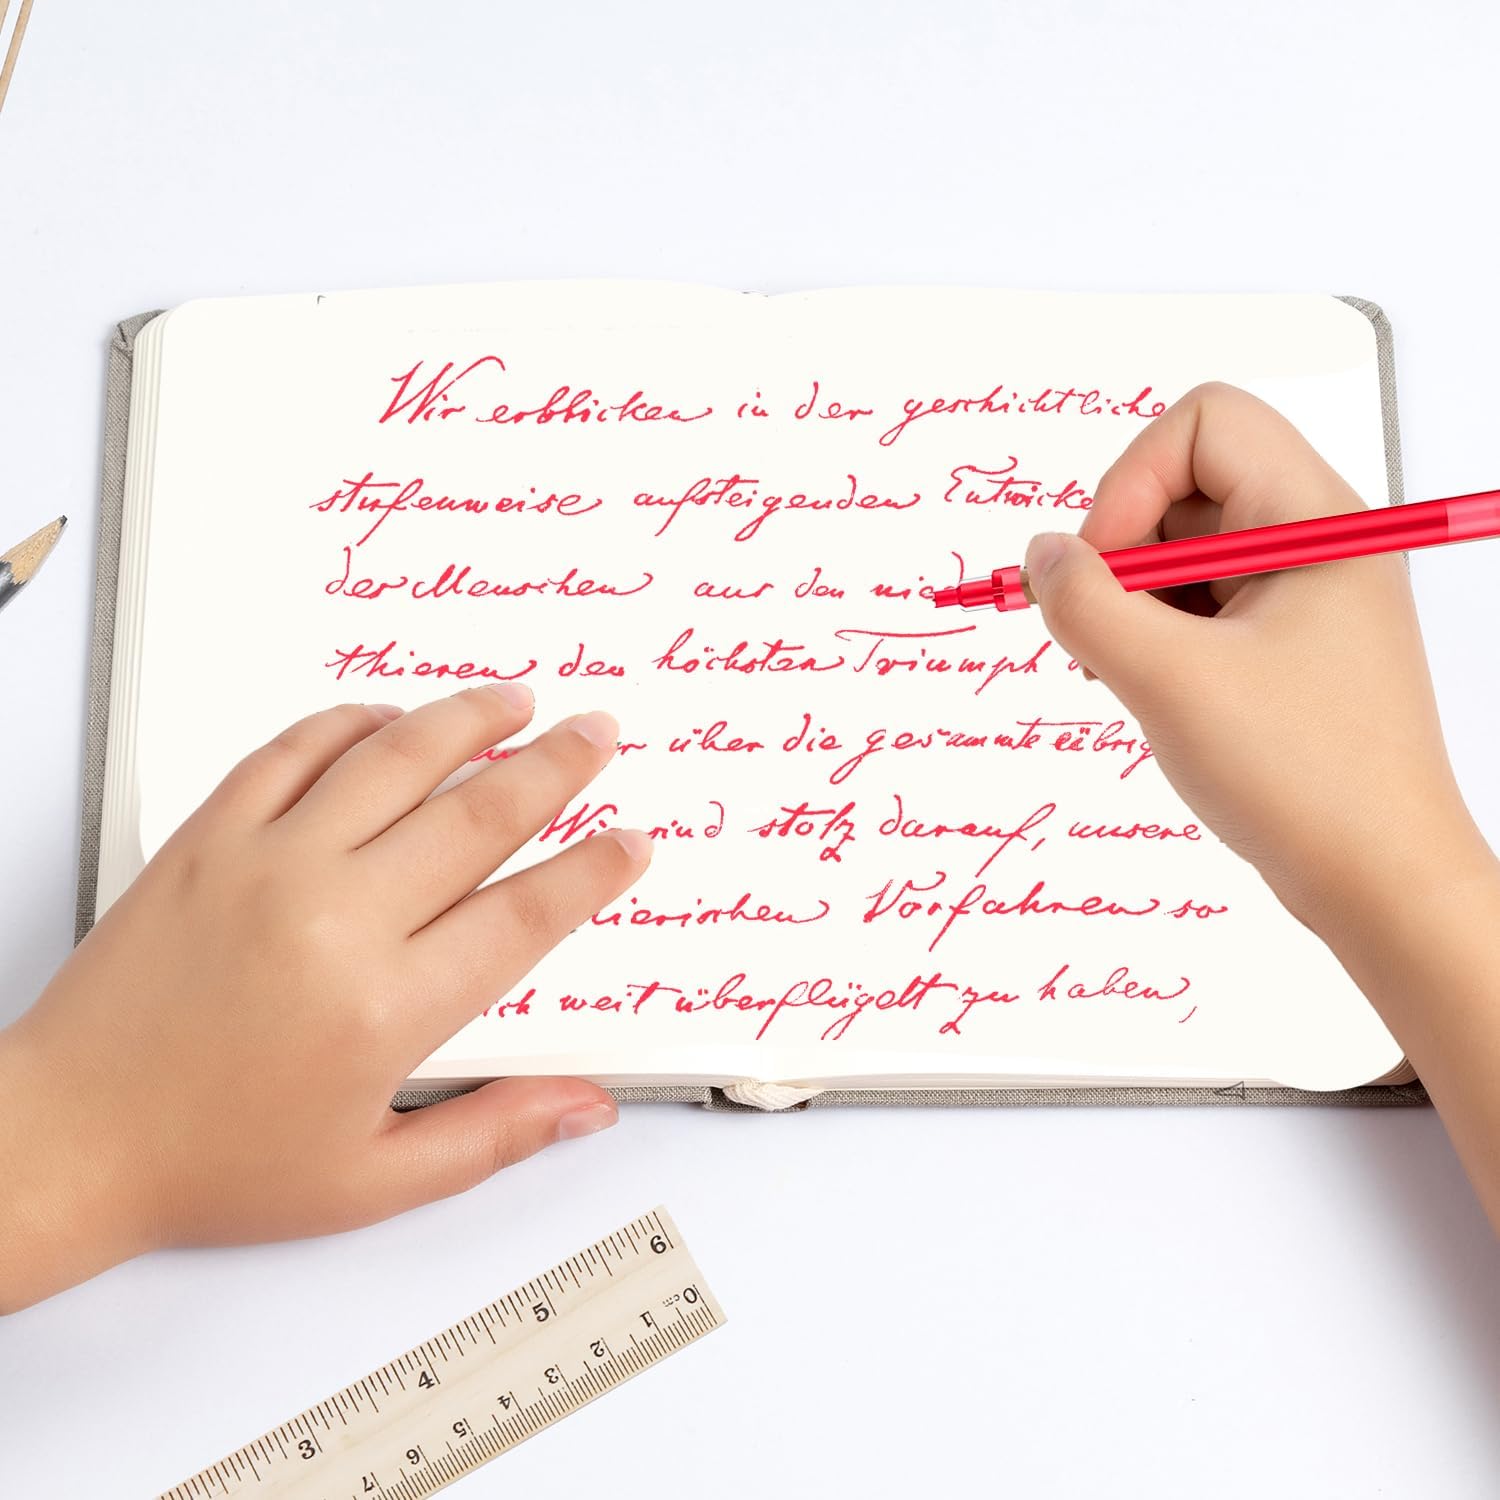 Wir erblicken in der geschichtliche
stufenweise aufsteigenden Entwicke
der Menschen aus den nied
thieren den höchsten Triumph d
er über die gesammte übrig
Wir sind stolz darauf, unsere
thierischen Vorfahren so
ich weit überflügelt zu haben,
6
5
4
3
0 cm
1
2
3
4
5
6
7